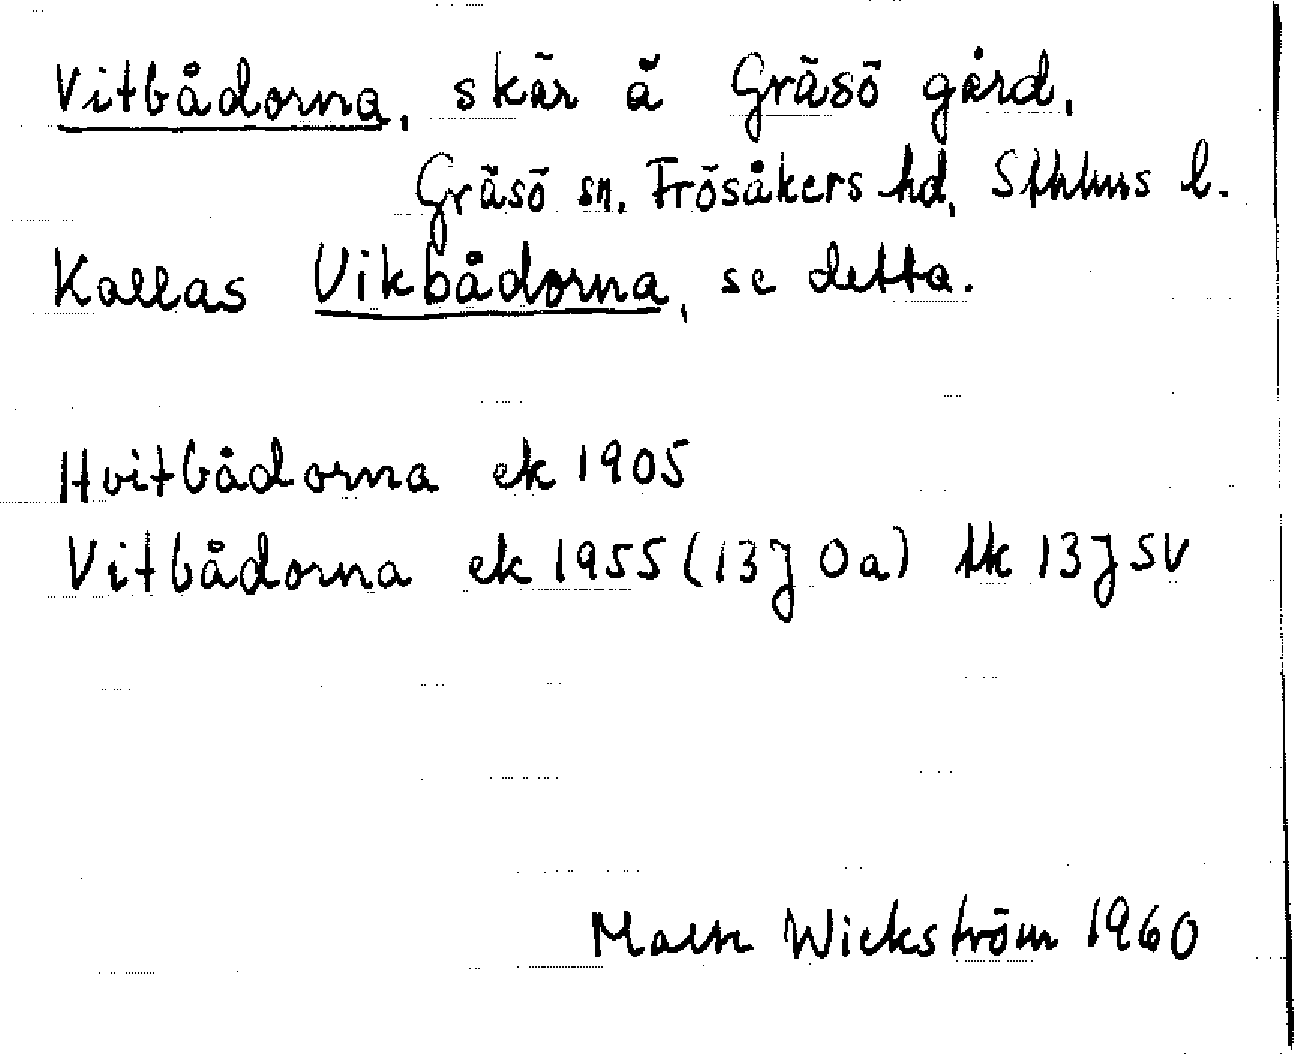 Vitbådorna, skär å Gräsö gård,
Gräsö sn. Frösåkers hd, Sthlms l.
Kallas Vikbådorna, se detta.
Hvitbådorna ek 1905
Vitbådorna ek 1955 (13J Oa) tk 13J SV
Wickström 1960